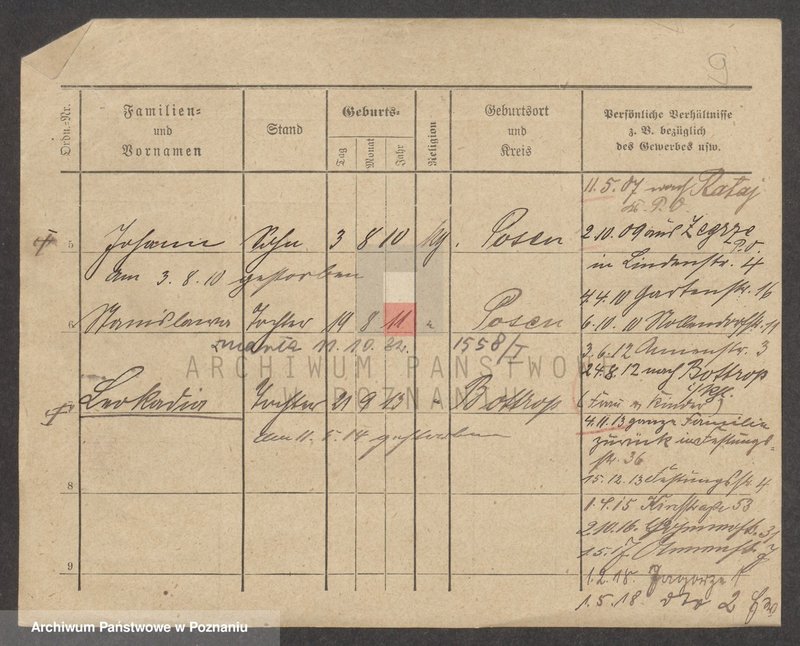 9
Ordn.-Nr.
Familien-
und
Vornamen
Stand
Geburts-
Tag
Monat
Jahr
Religion
Geburtsort
und
Kreis
Persönliche Verhältnisse
z. B. bezüglich
des Gewerbes usw.
11.5.07 nach Rataj
Kr. P. O
5 Johann Sohn 3 8 10 kg. Posen
am 3.8.10 gestorben
2.10.09 aus Zegrze
P.O.
in Lindenstr. 4
4.4.10 Gartenstr. 16
6 Stanislawa Tochter 19 8 11 " Posen
6.10.10 Nollendorfstr. 11
11.10.32. 1558/I
3.6.12 Annenstr. 3
ARCHIWUM PAŃSTWOWE
W POZNANIU
24.8.12 nach Bottrop
Leokadia Tochter 21 9 13 " Bottrop
(Frau u Kinder)
am 11.5.14 gestorben
4.11.13 ganze Familie
zurück in Festungs-
str. 36
8
15.12.13 Festungsstr 4
1.4.15 53
2.10.16.
1.5.17 Annenstr. 7
9
1.2.18. Zagorze 1
1.5.18. dto 2
Archiwum Państwowe w Poznaniu